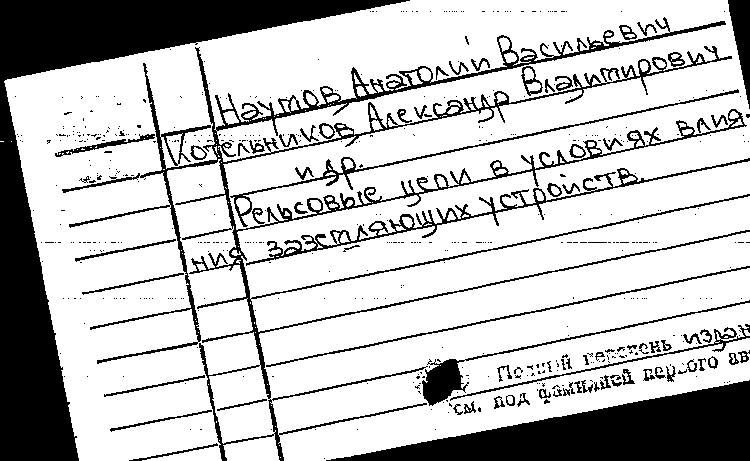 Наумов Анатолий Васильевич
Котельников Александр Владимирович
и др.
Рельсовые цепи в условиях влия-
ния заземляющих устройств.
Полный перечень издан
см. под фамилией первого ав